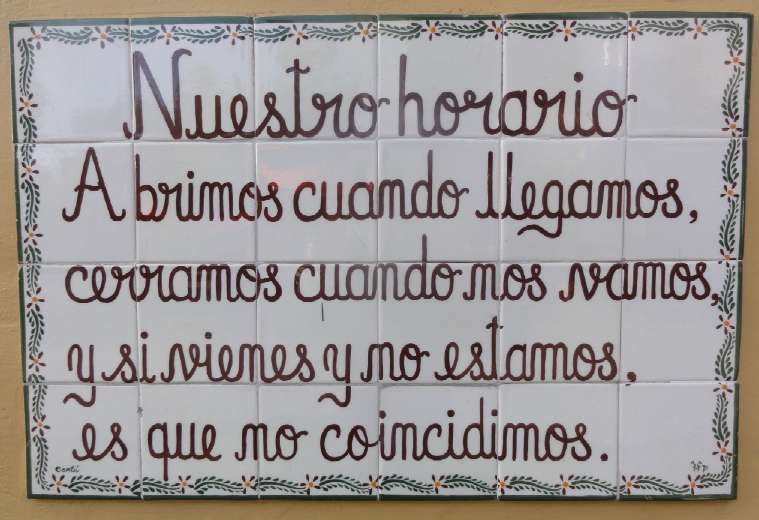 Nuestro horario
Abrimos cuando llegamos,
cerramos cuando nos vamos,
y si vienes y no estamos,
es que no coincidimos.